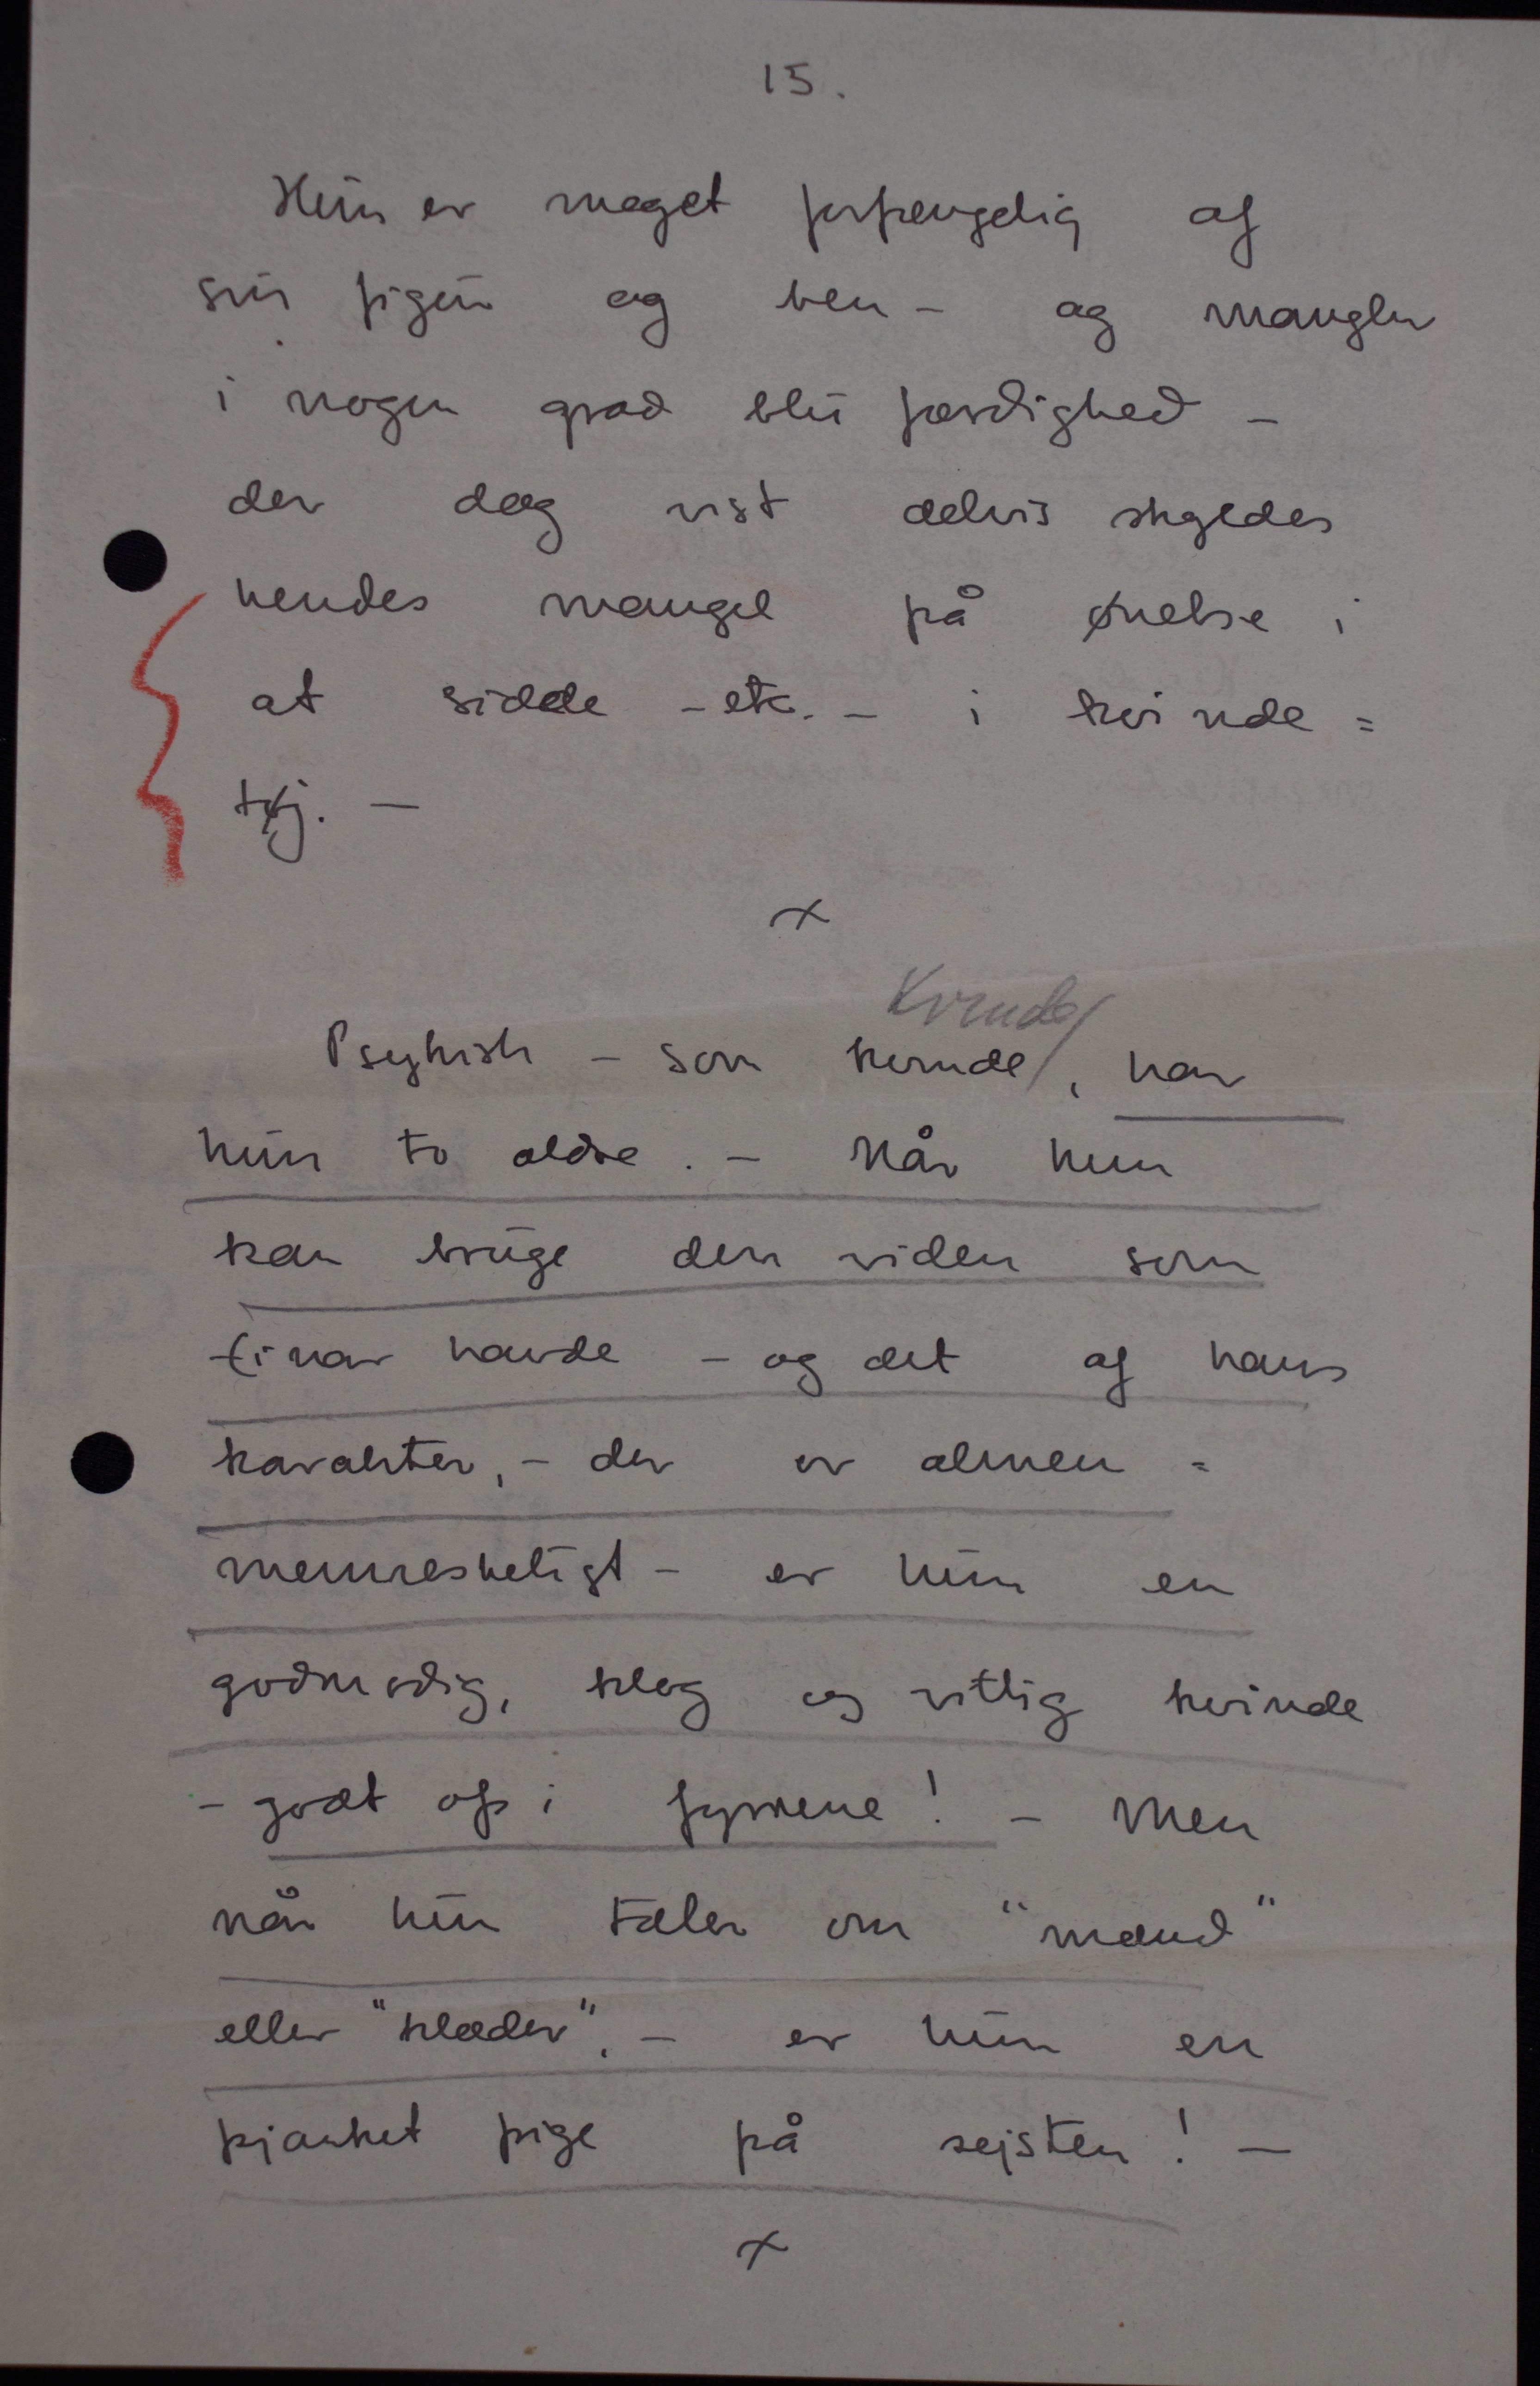 15.
Hun er meget forfengelig af
sin figur og ben - og mangler
i nogen grad blu færdighed -
der dog vist delvis skyldes
hendes mangel på øvelse i
at sidde - etc. - i kvinde =
tøj. -
x
Kvinde
Psykisk - som kvinde, har
hun to aldre. - Når hun
kan bruge den viden som
Einar havde - og det af hans
karakter, - der er almen =
menneskeligt - er hun en
godmodig, klog og vittig kvinde
- godt op i fyrrene! - Men
når hun taler om "mænd"
eller "klæder". - er hun en
pjanket pige på sejsten! -
x